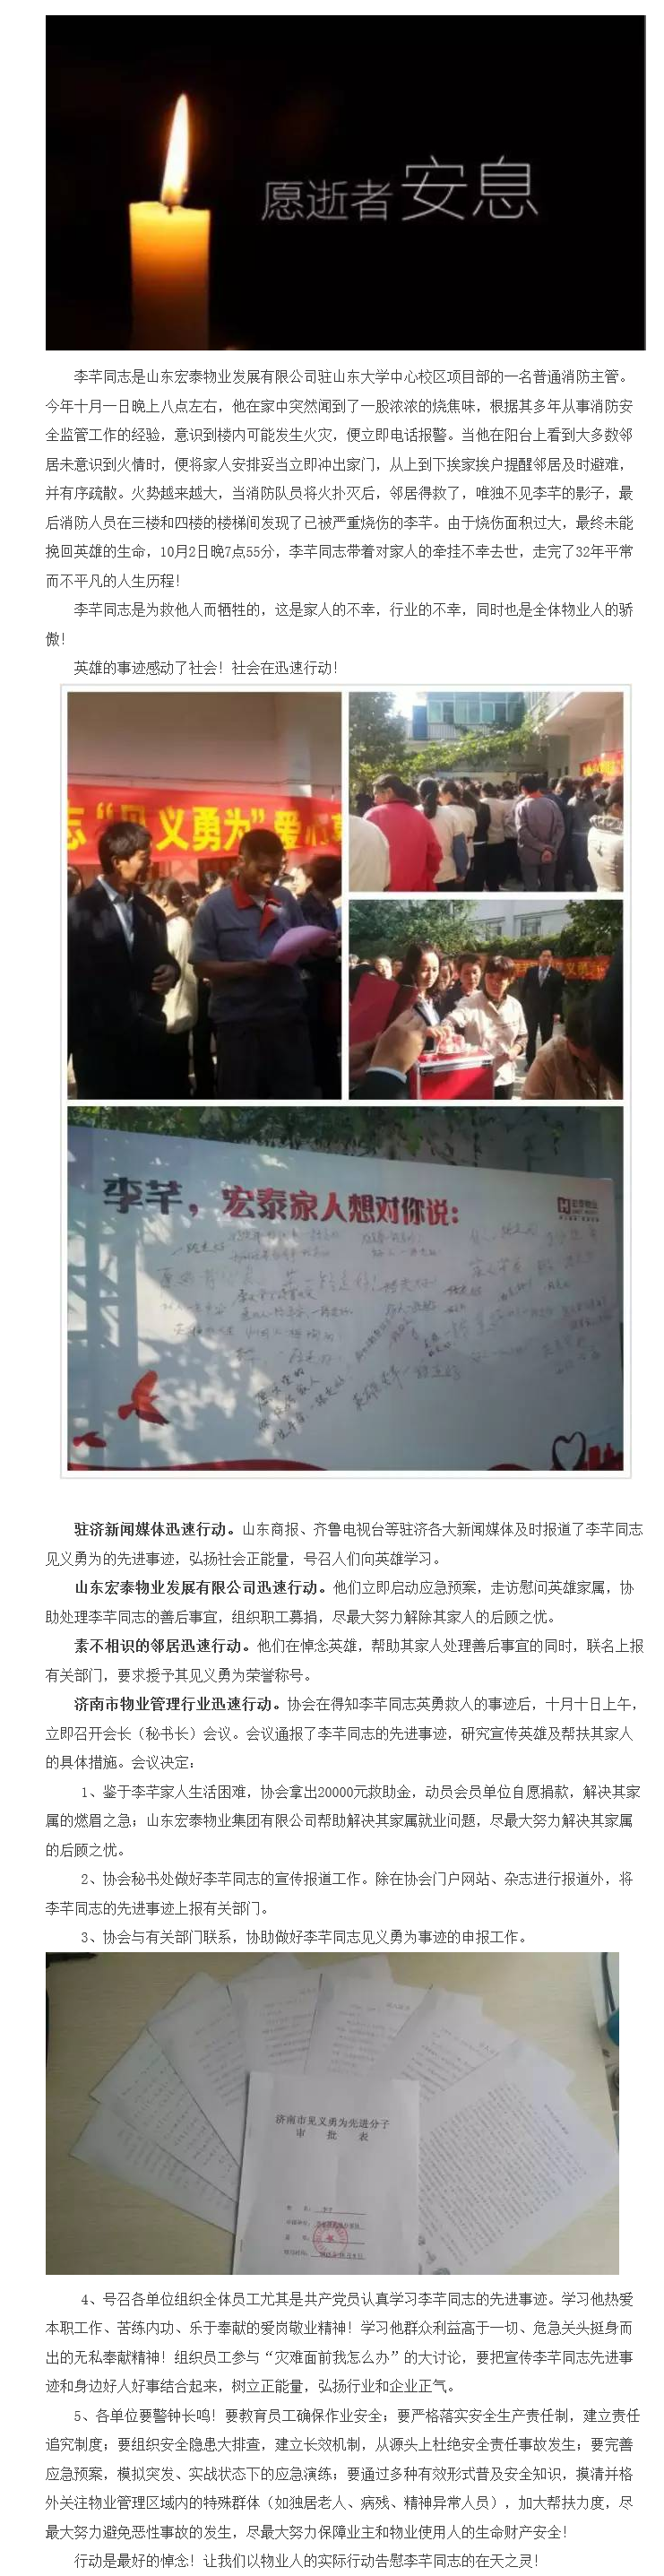 愿逝者安息
李芊同志是山东宏泰物业发展有限公司驻山东大学中心校区项目部的一名普通消防主管。
今年十月一日晚上八点左右，他在家中突然闻到了一股浓浓的烧焦味，根据其多年从事消防安
全监管工作的经验，意识到楼内可能发生火灾，便立即电话报警。当他在阳台上看到大多数邻
居未意识到火情时，便将家人安排妥当立即冲出家门，从上到下挨家挨户提醒邻居及时避难，
并有序疏散。火势越来越大，当消防队员将火扑灭后，邻居得救了，唯独不见李芊的影子，最
后消防人员在三楼和四楼的楼梯间发现了已被严重烧伤的李芊。由于烧伤面积过大，最终未能
挽回英雄的生命，10月2日晚7点55分，李芊同志带着对家人的牵挂不幸去世，走完了32年平常
而不平凡的人生历程！
李芊同志是为救他人而牺牲的，这是家人的不幸，行业的不幸，同时也是全体物业人的骄
傲！
英雄的事迹感动了社会！社会在迅速行动！
志“见义勇为”爱心
李芊，宏泰家人想对你说：
宏泰物业
驻济新闻媒体迅速行动。山东商报、齐鲁电视台等驻济各大新闻媒体及时报道了李芊同志
见义勇为的先进事迹，弘扬社会正能量，号召人们向英雄学习。
山东宏泰物业发展有限公司迅速行动。他们立即启动应急预案，走访慰问英雄家属，协
助处理李芊同志的善后事宜，组织职工募捐，尽最大努力解除其家人的后顾之忧。
素不相识的邻居迅速行动。他们在悼念英雄，帮助其家人处理善后事宜的同时，联名上报
有关部门，要求授予其见义勇为荣誉称号。
济南市物业管理行业迅速行动。协会在得知李芊同志英勇救人的事迹后，十月十日上午，
立即召开会长（秘书长）会议。会议通报了李芊同志的先进事迹，研究宣传英雄及帮扶其家人
的具体措施。会议决定：
1、鉴于李芊家人生活困难，协会拿出20000元救助金，动员会员单位自愿捐款，解决其家
属的燃眉之急；山东宏泰物业集团有限公司帮助解决其家属就业问题，尽最大努力解决其家属
的后顾之忧。
2、协会秘书处做好李芊同志的宣传报道工作。除在协会门户网站、杂志进行报道外，将
李芊同志的先进事迹上报有关部门。
3、协会与有关部门联系，协助做好李芊同志见义勇为事迹的申报工作。
济南市见义勇为先进分子
审 批 表
4、号召各单位组织全体员工尤其是共产党员认真学习李芊同志的先进事迹。学习他热爱
本职工作、苦练内功、乐于奉献的爱岗敬业精神！学习他群众利益高于一切、危急关头挺身而
出的无私奉献精神！组织员工参与“灾难面前我怎么办”的大讨论，要把宣传李芊同志先进事
迹和身边好人好事结合起来，树立正能量，弘扬行业和企业正气。
5、各单位要警钟长鸣！要教育员工确保作业安全；要严格落实安全生产责任制，建立责任
追究制度；要组织安全隐患大排查，建立长效机制，从源头上杜绝安全责任事故发生；要完善
应急预案，模拟突发、实战状态下的应急演练；要通过多种有效形式普及安全知识，摸清并格
外关注物业管理区域内的特殊群体（如独居老人、病残、精神异常人员），加大帮扶力度，尽
最大努力避免恶性事故的发生，尽最大努力保障业主和物业使用人的生命财产安全！
行动是最好的悼念！让我们以物业人的实际行动告慰李芊同志的在天之灵！